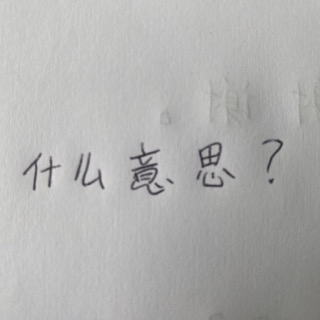 什么意思？